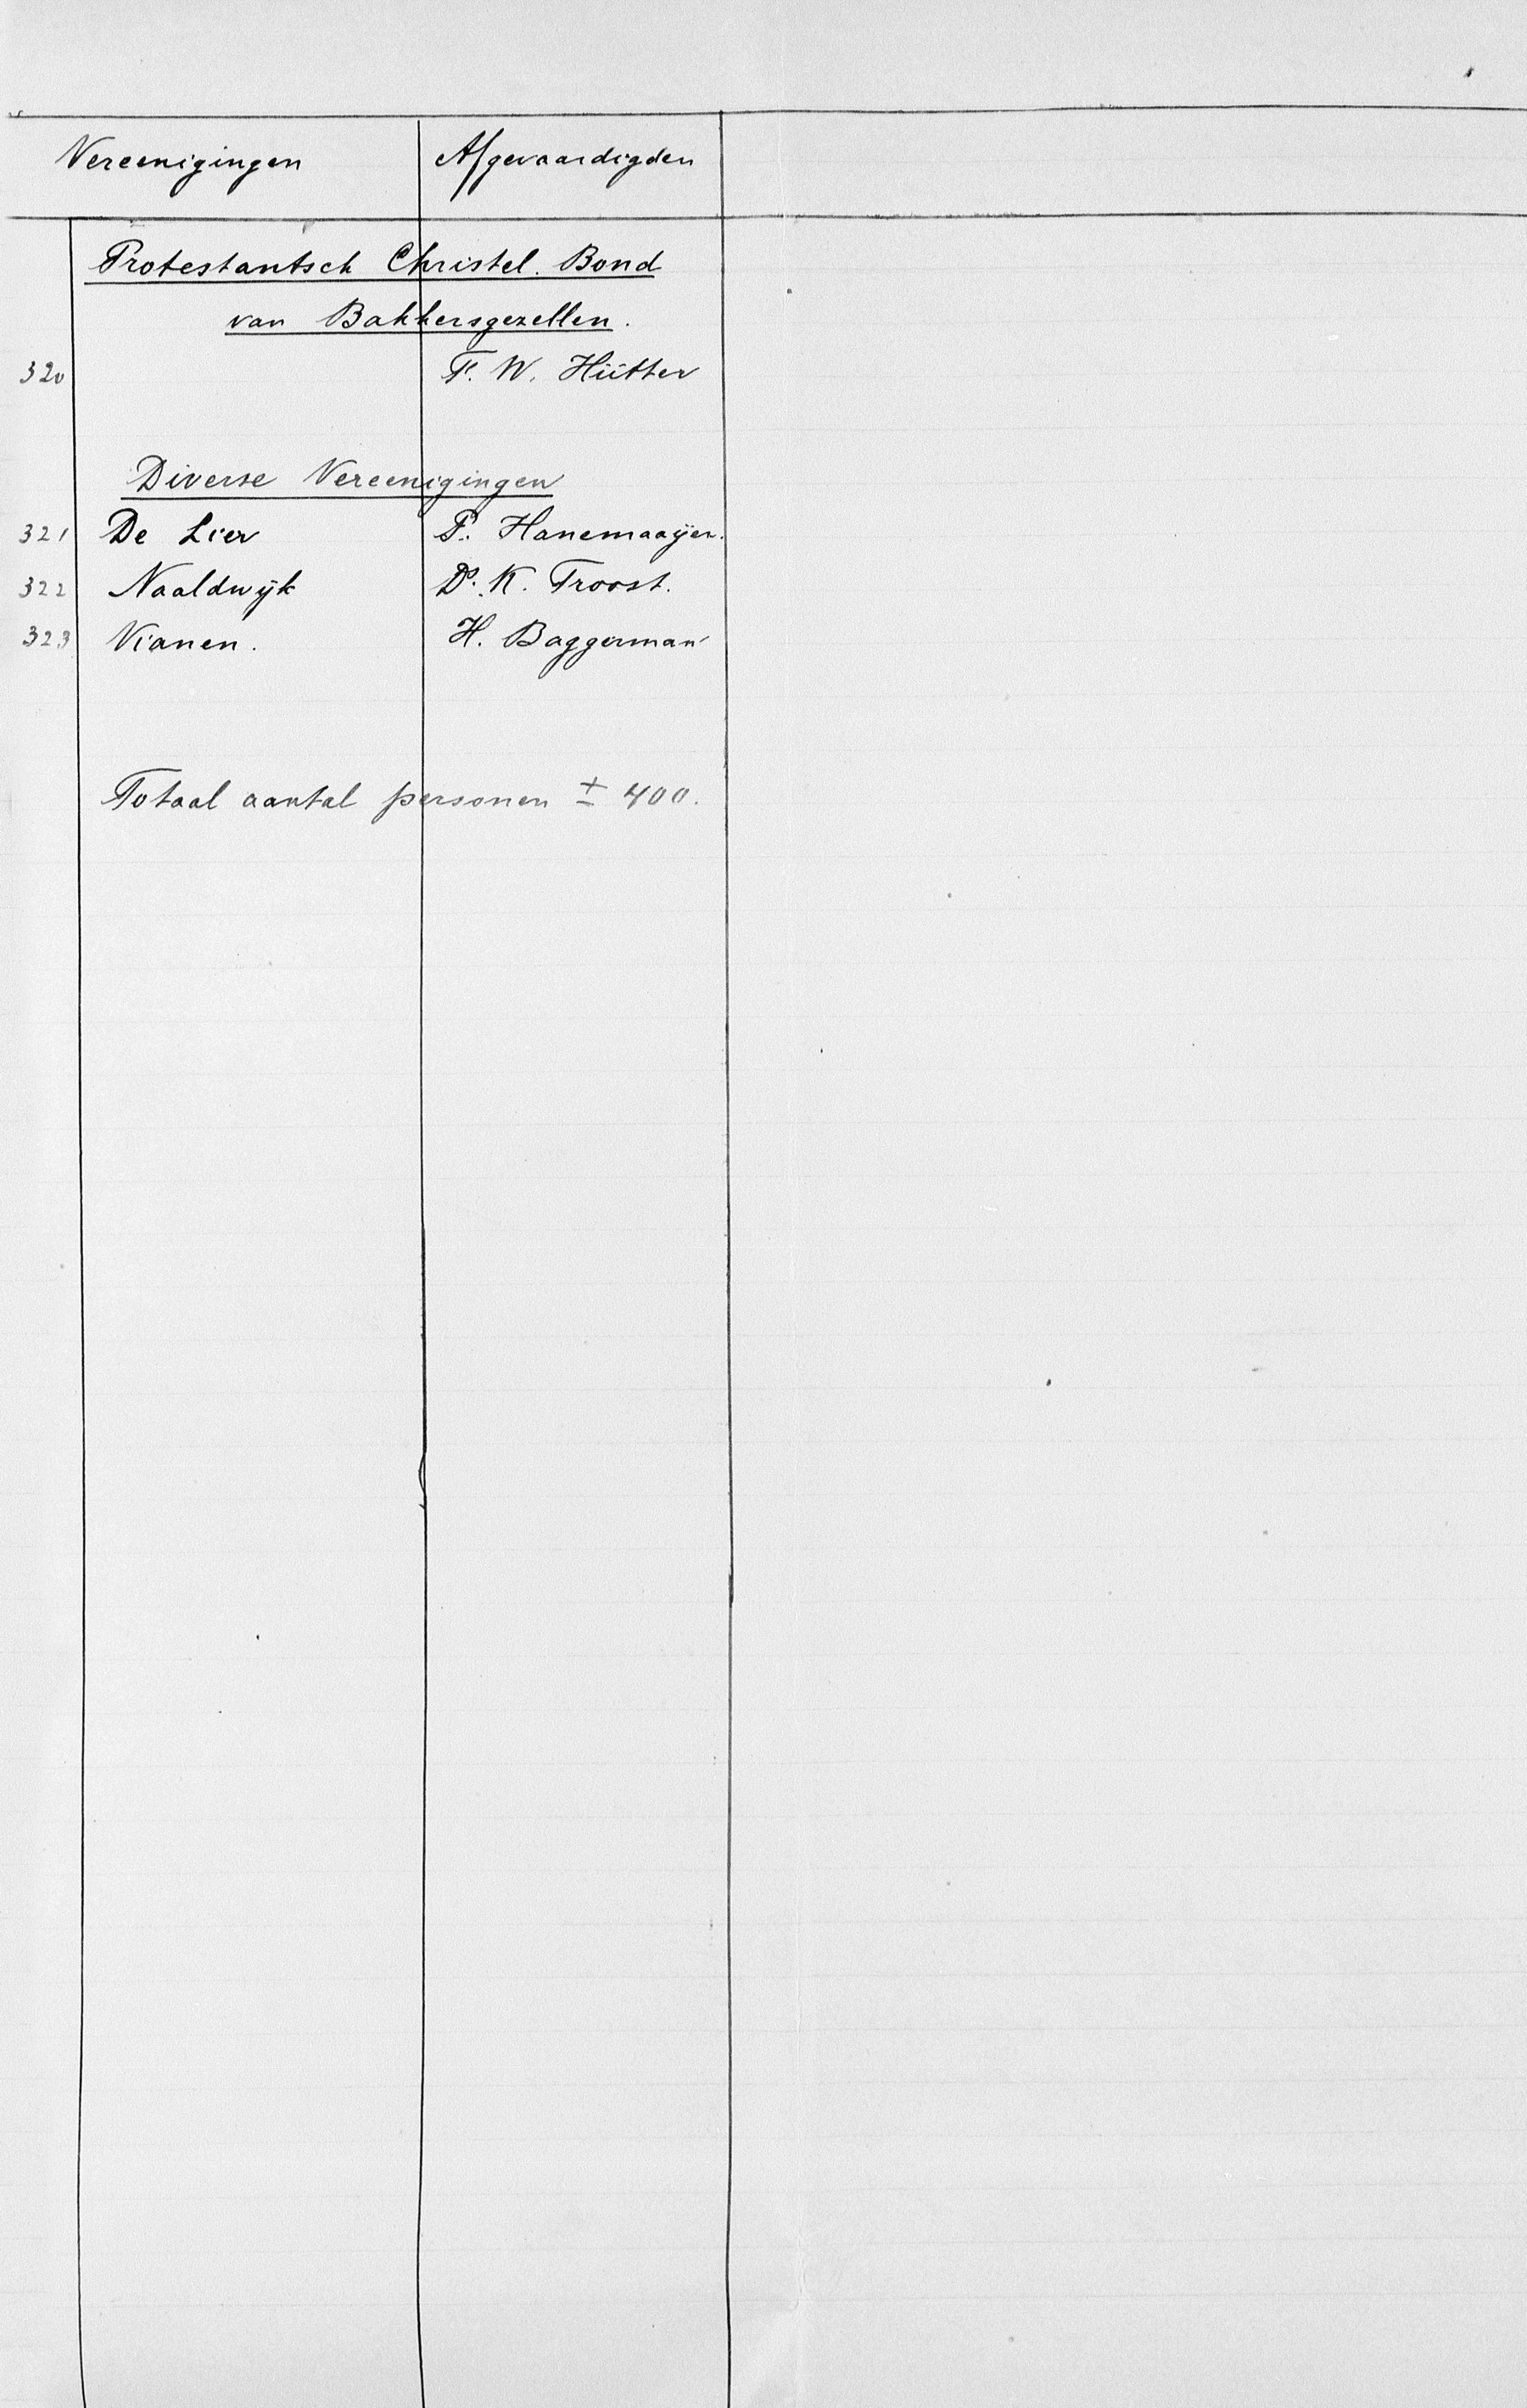 Vereenigingen Afgevaardigden
Protestantsch Christel. Bond
van Bakkersgezellen.
320 F. W. Hütter
Diverse Vereenigingen
321 De Lier P. Hanemaaijer.
322 Naaldwijk Ds. K. Troost.
323 Vianen. H. Baggerman
Totaal aantal personen ± 400.